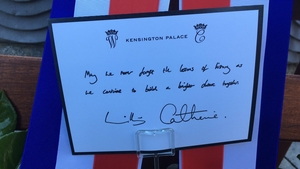 KENSINGTON PALACE
May we never forget the lessons of history as
we continue to build a brighter future together.
William Catherine.